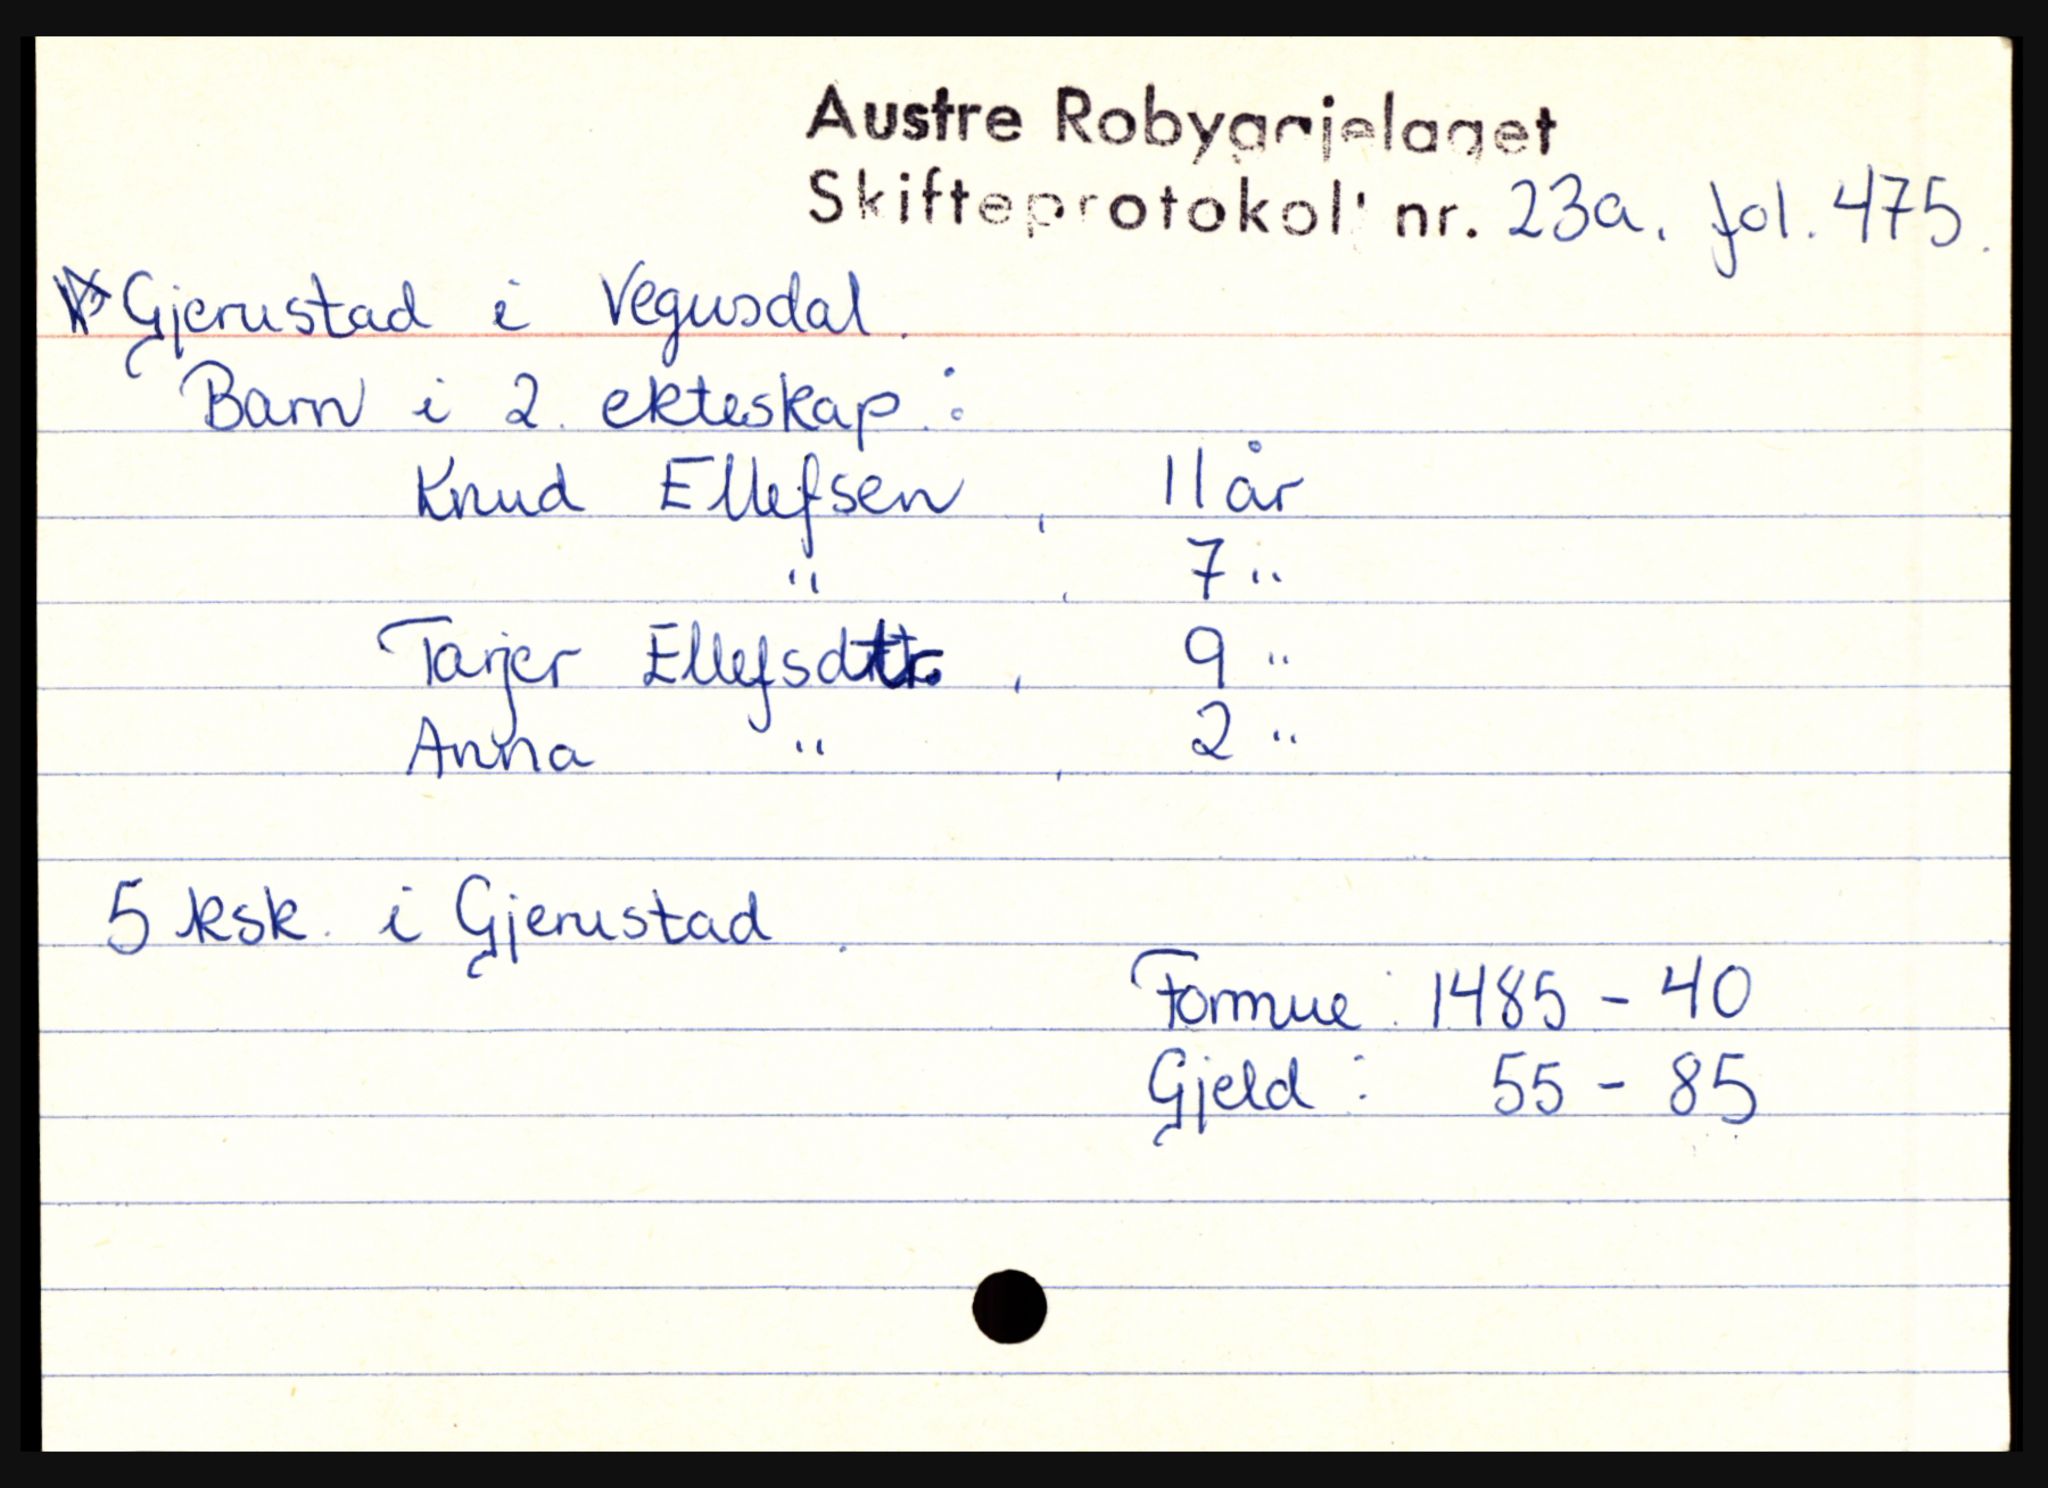 Austre Robygdelaget
Skifteprotokoll nr. 23a. fol. 475.
Gjerustad i Vegusdal.
Barn i 2. ekteskap:
Knud Ellefsen, 11 år
", 7 "
Tarjer Ellefsdtr., 9 "
Anna ", 2 "
5 ksk. i Gjerustad.
Formue: 1485 - 40
Gjeld: 55 - 85